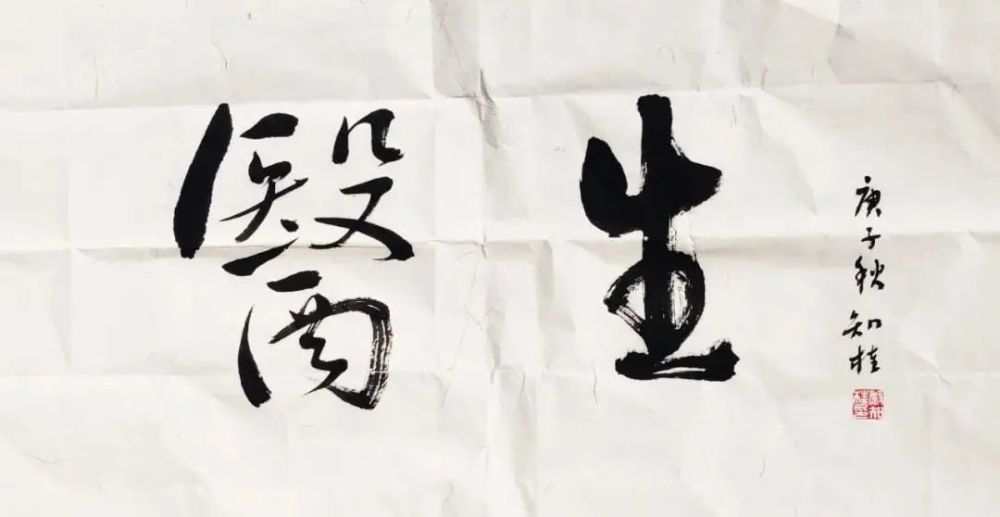 醫生
庚子秋 知桂